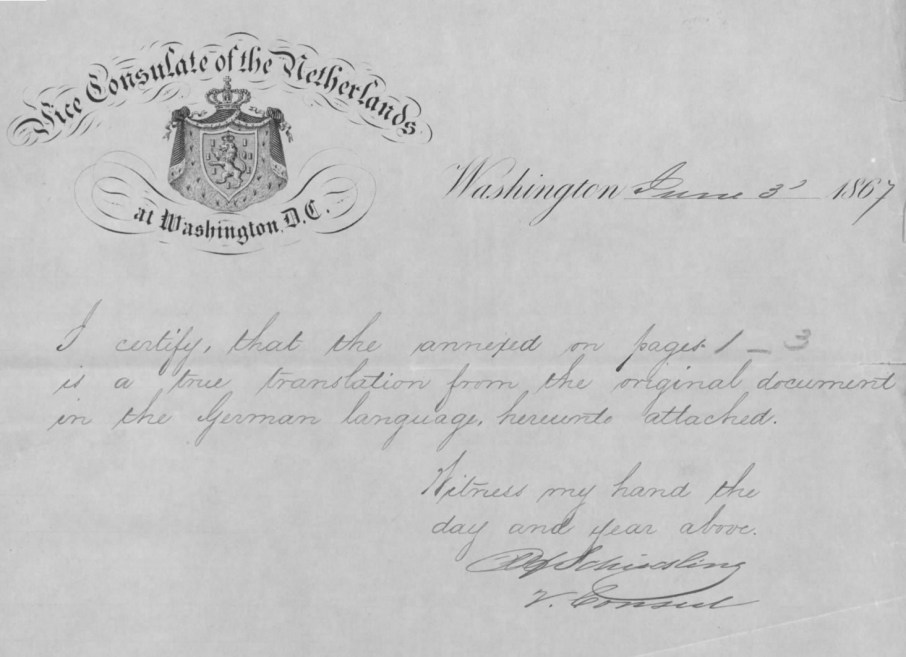 Vice Consulate of the Netherlands
at Washington, D.C.
Washington June 3' 1867
I certify, that the annexed on pages 1 – 3
is a true translation from the original document
in the German language, hereunto attached.
Witness my hand the
day and year above.
V. Consul